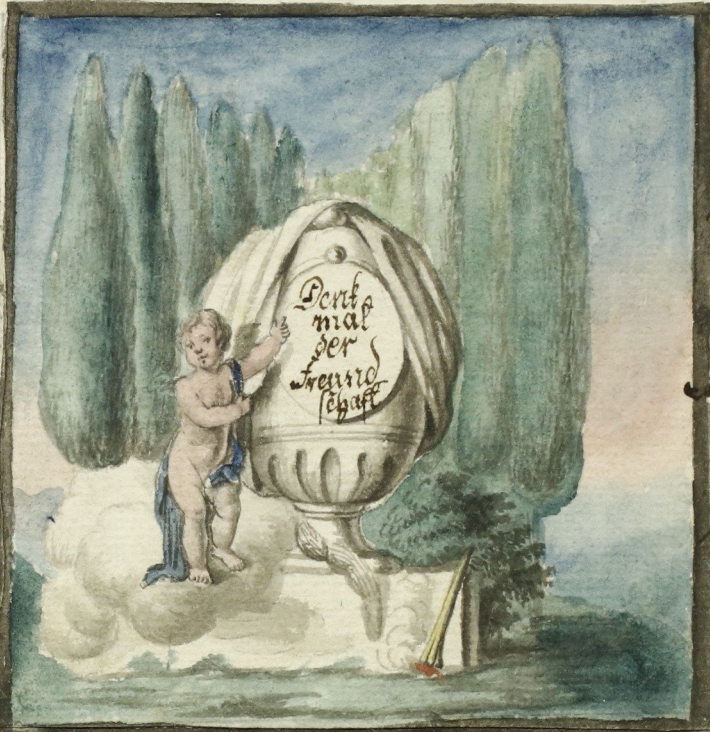 Denk
mal
der
Freund
schaft